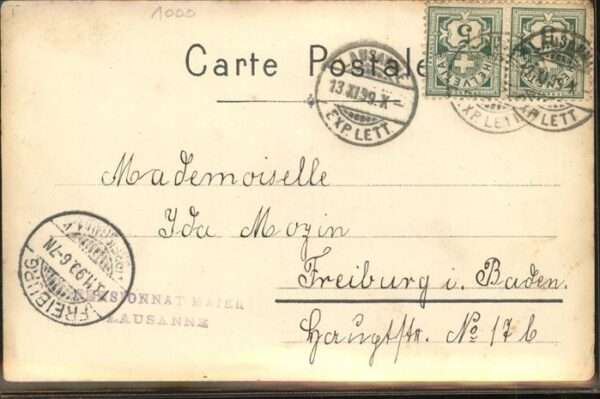 1000
Carte Postale
LAUSANNE
13.XI.99.X-
EXP. LETT.
5
HELVETIA
5
LAUSANNE
EXP. LETT.
Mademoiselle
Ida Mozin
Freiburg i. Baden.
Hauptstr. No 17 b
FREIBURG
6-7N
PENSIONNAT MAIER
LAUSANNE